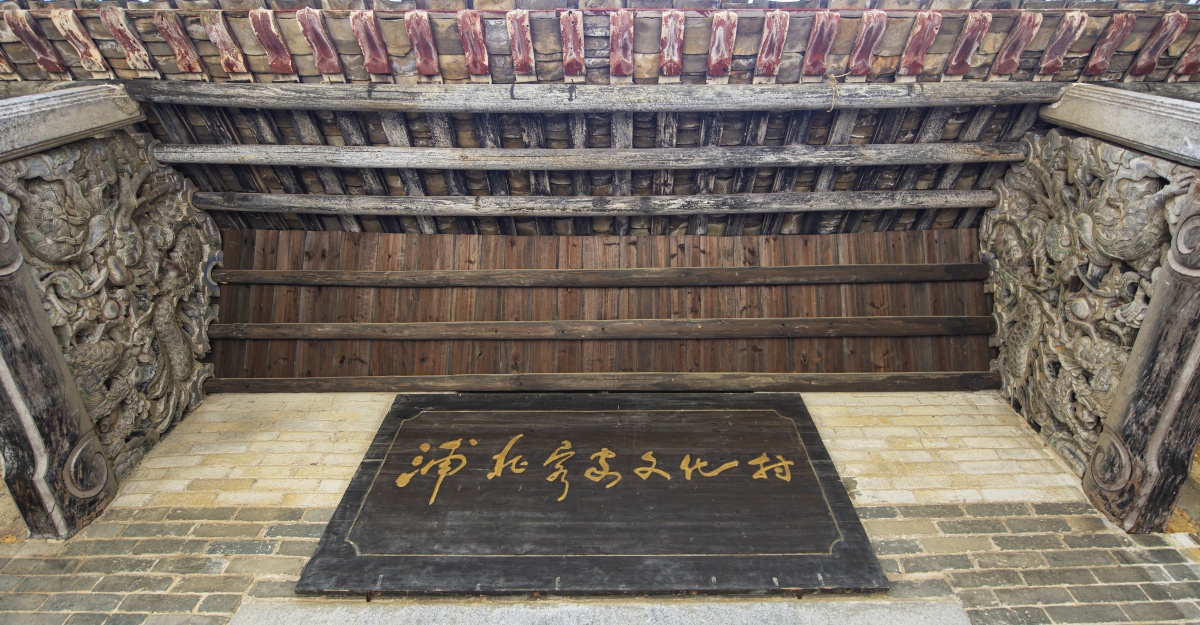 浦北客家文化村